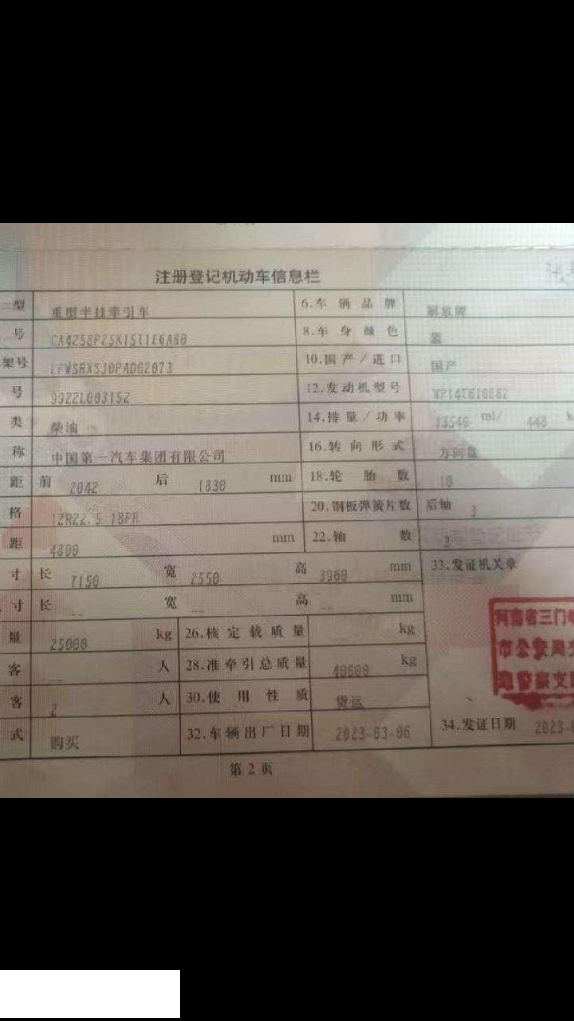 注册登记机动车信息栏
型 重型半挂牵引车 6.车辆品牌 解放牌
号 8.车身颜色 蓝
架号 10.国产/进口 国产
号 12.发动机型号
类 柴油 14.排量/功率 ml/
称 中国第一汽车集团有限公司 16.转向形式 方向盘
距 前 2042 后 1830 mm 18.轮胎数 10
格 12R22.5 18PR 20.钢板弹簧片数 后轴 3
距 4800 mm 22.轴数 3
寸 长 7150 宽 2550 高 3960 mm 33.发证机关章
寸 长 -- 宽 -- 高 -- mm
量 25000 kg 26.核定载质量 kg
客 -- 人 28.准牵引总质量 kg
客 2 人 30.使用性质 货运
式 购买 32.车辆出厂日期 2023-03-06 34.发证日期
河南省三门
市公安局交
通警察支
第2页